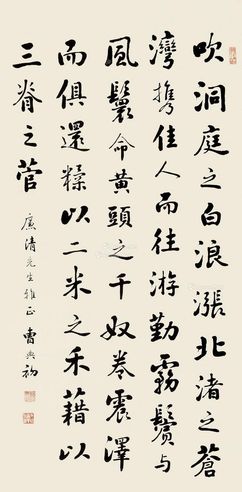 吹洞庭之白浪漲北渚之蒼
灣攜佳人而往游勤霧鬢与
風鬟命黃頭之千奴卷震澤
而俱還糅以二米之禾藉以
三脊之菅
廉清先生雅正 曹典初